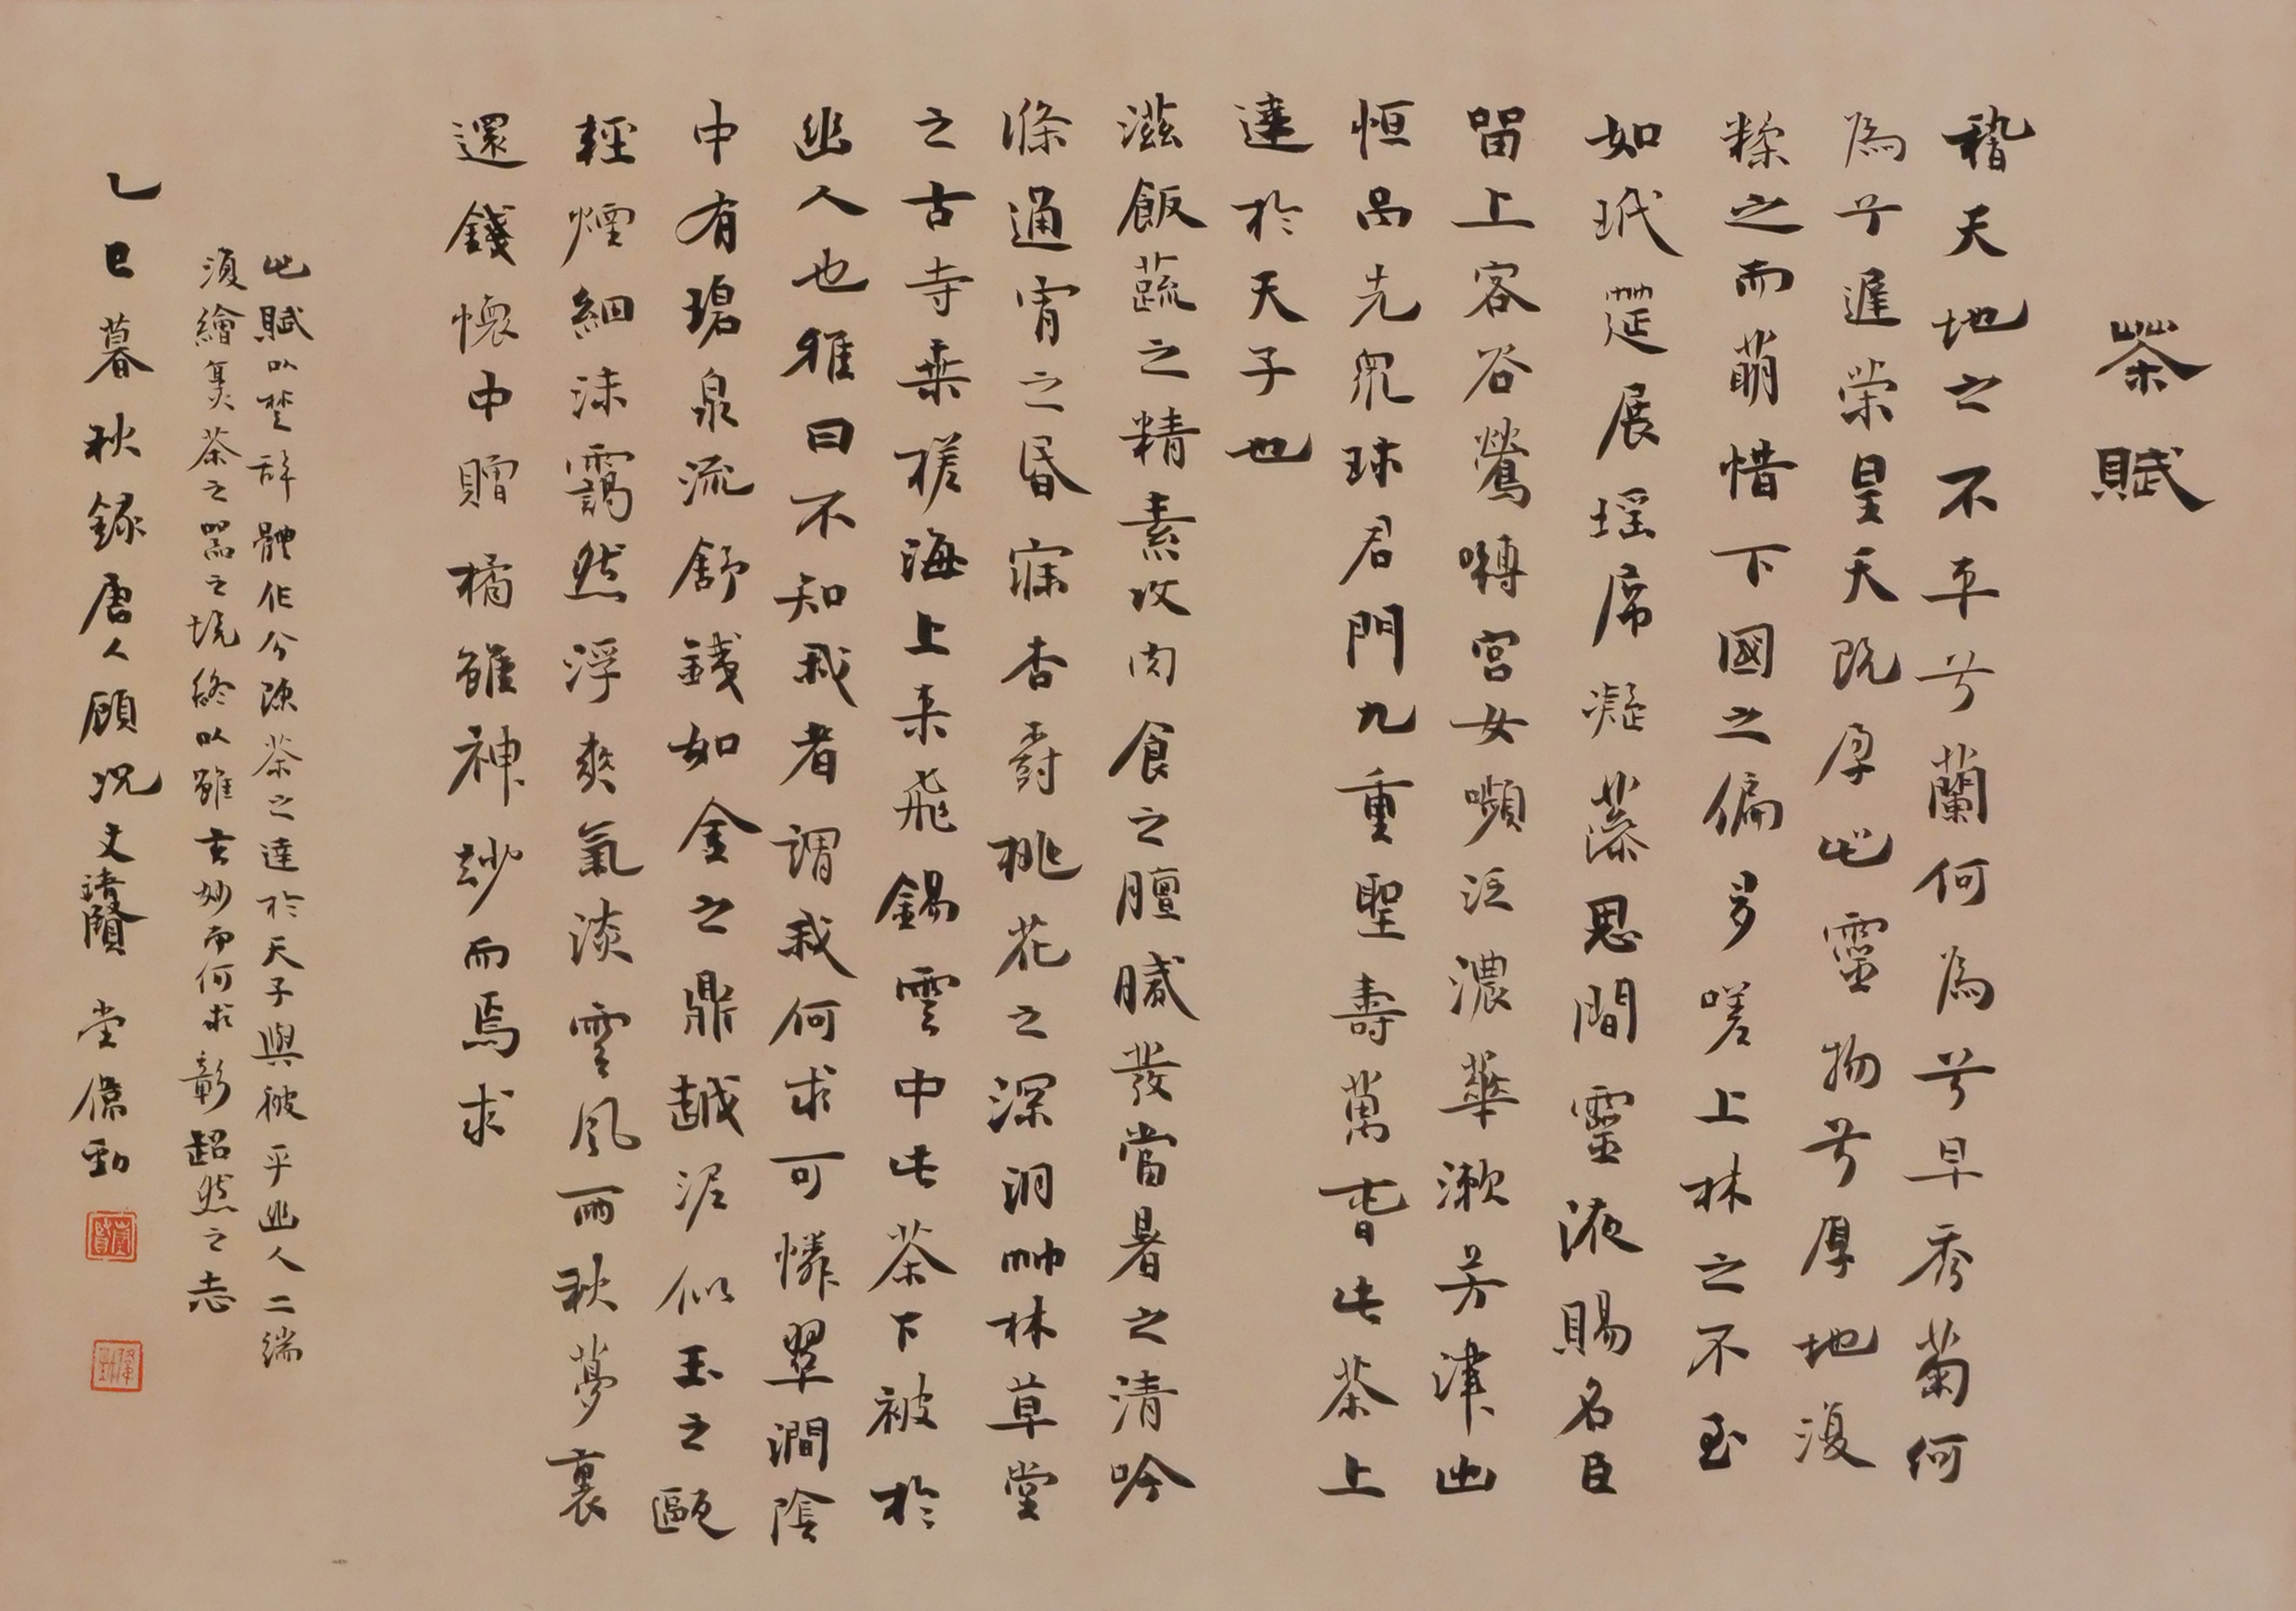 茶賦
稽天地之不平兮蘭何為兮早秀菊何
為兮遲榮皇天既孕此靈物兮厚地復
糅之而萌惜下國之偏多嗟上林之不至
如玳筵展瑶席凝藻思間靈液賜名臣
留上客谷鶯囀宮女嚬泛濃華漱芳津出
恒品先眾珍君門九重聖壽萬春此茶上
達於天子也
滋飯蔬之精素攻肉食之膻膩發當暑之清吟
滌通宵之昏寐杏樹桃花之深洞竹林草堂
之古寺乘槎海上来飛錫雲中此茶下被於
幽人也雅曰不知我者謂我何求可憐翠澗陰
中有碧泉流舒鐵如金之鼎越泥似玉之甌
輕煙細沫靄然浮爽氣淡雲風雨秋夢裏
還錢懷中贈橘雖神妙而焉求
此賦以楚辭體作分陳茶之達於天子與被乎幽人二端
復繪煮茶之器之境終以雖玄妙而何求彰超然之志
乙巳暮秋錄唐人顧况文 堂偉勁